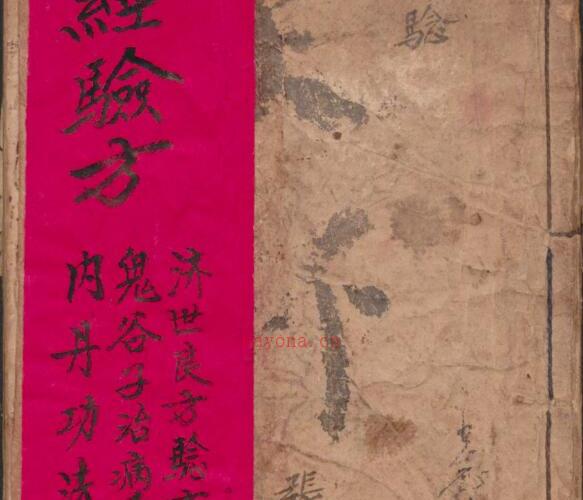 經驗方
济世良方驗方
鬼谷子治病
内丹功法
驗
下
張
nyona.cn